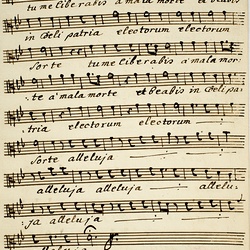 tu me liberabis a mala morte et beabis
in Celi patria electorum electorum
Sorte tu me liberabis à mala mor:
:te à mala morte et beabis in Celi pa:
tria electorum electorum
Sorte alleluja
alleluja alleluja allelu:
ja alleluja